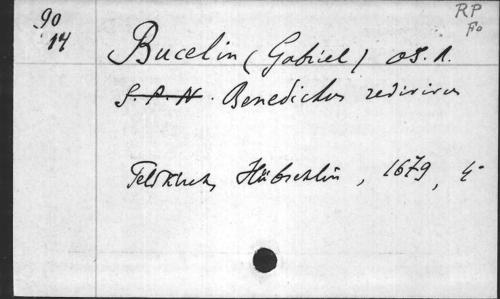 90
14
RP
Fo
Bucelin (Gabriel) OS. B.
S. P. N. Benedictus redivivus
Feldkirch, Hübschlin, 1679, 4°